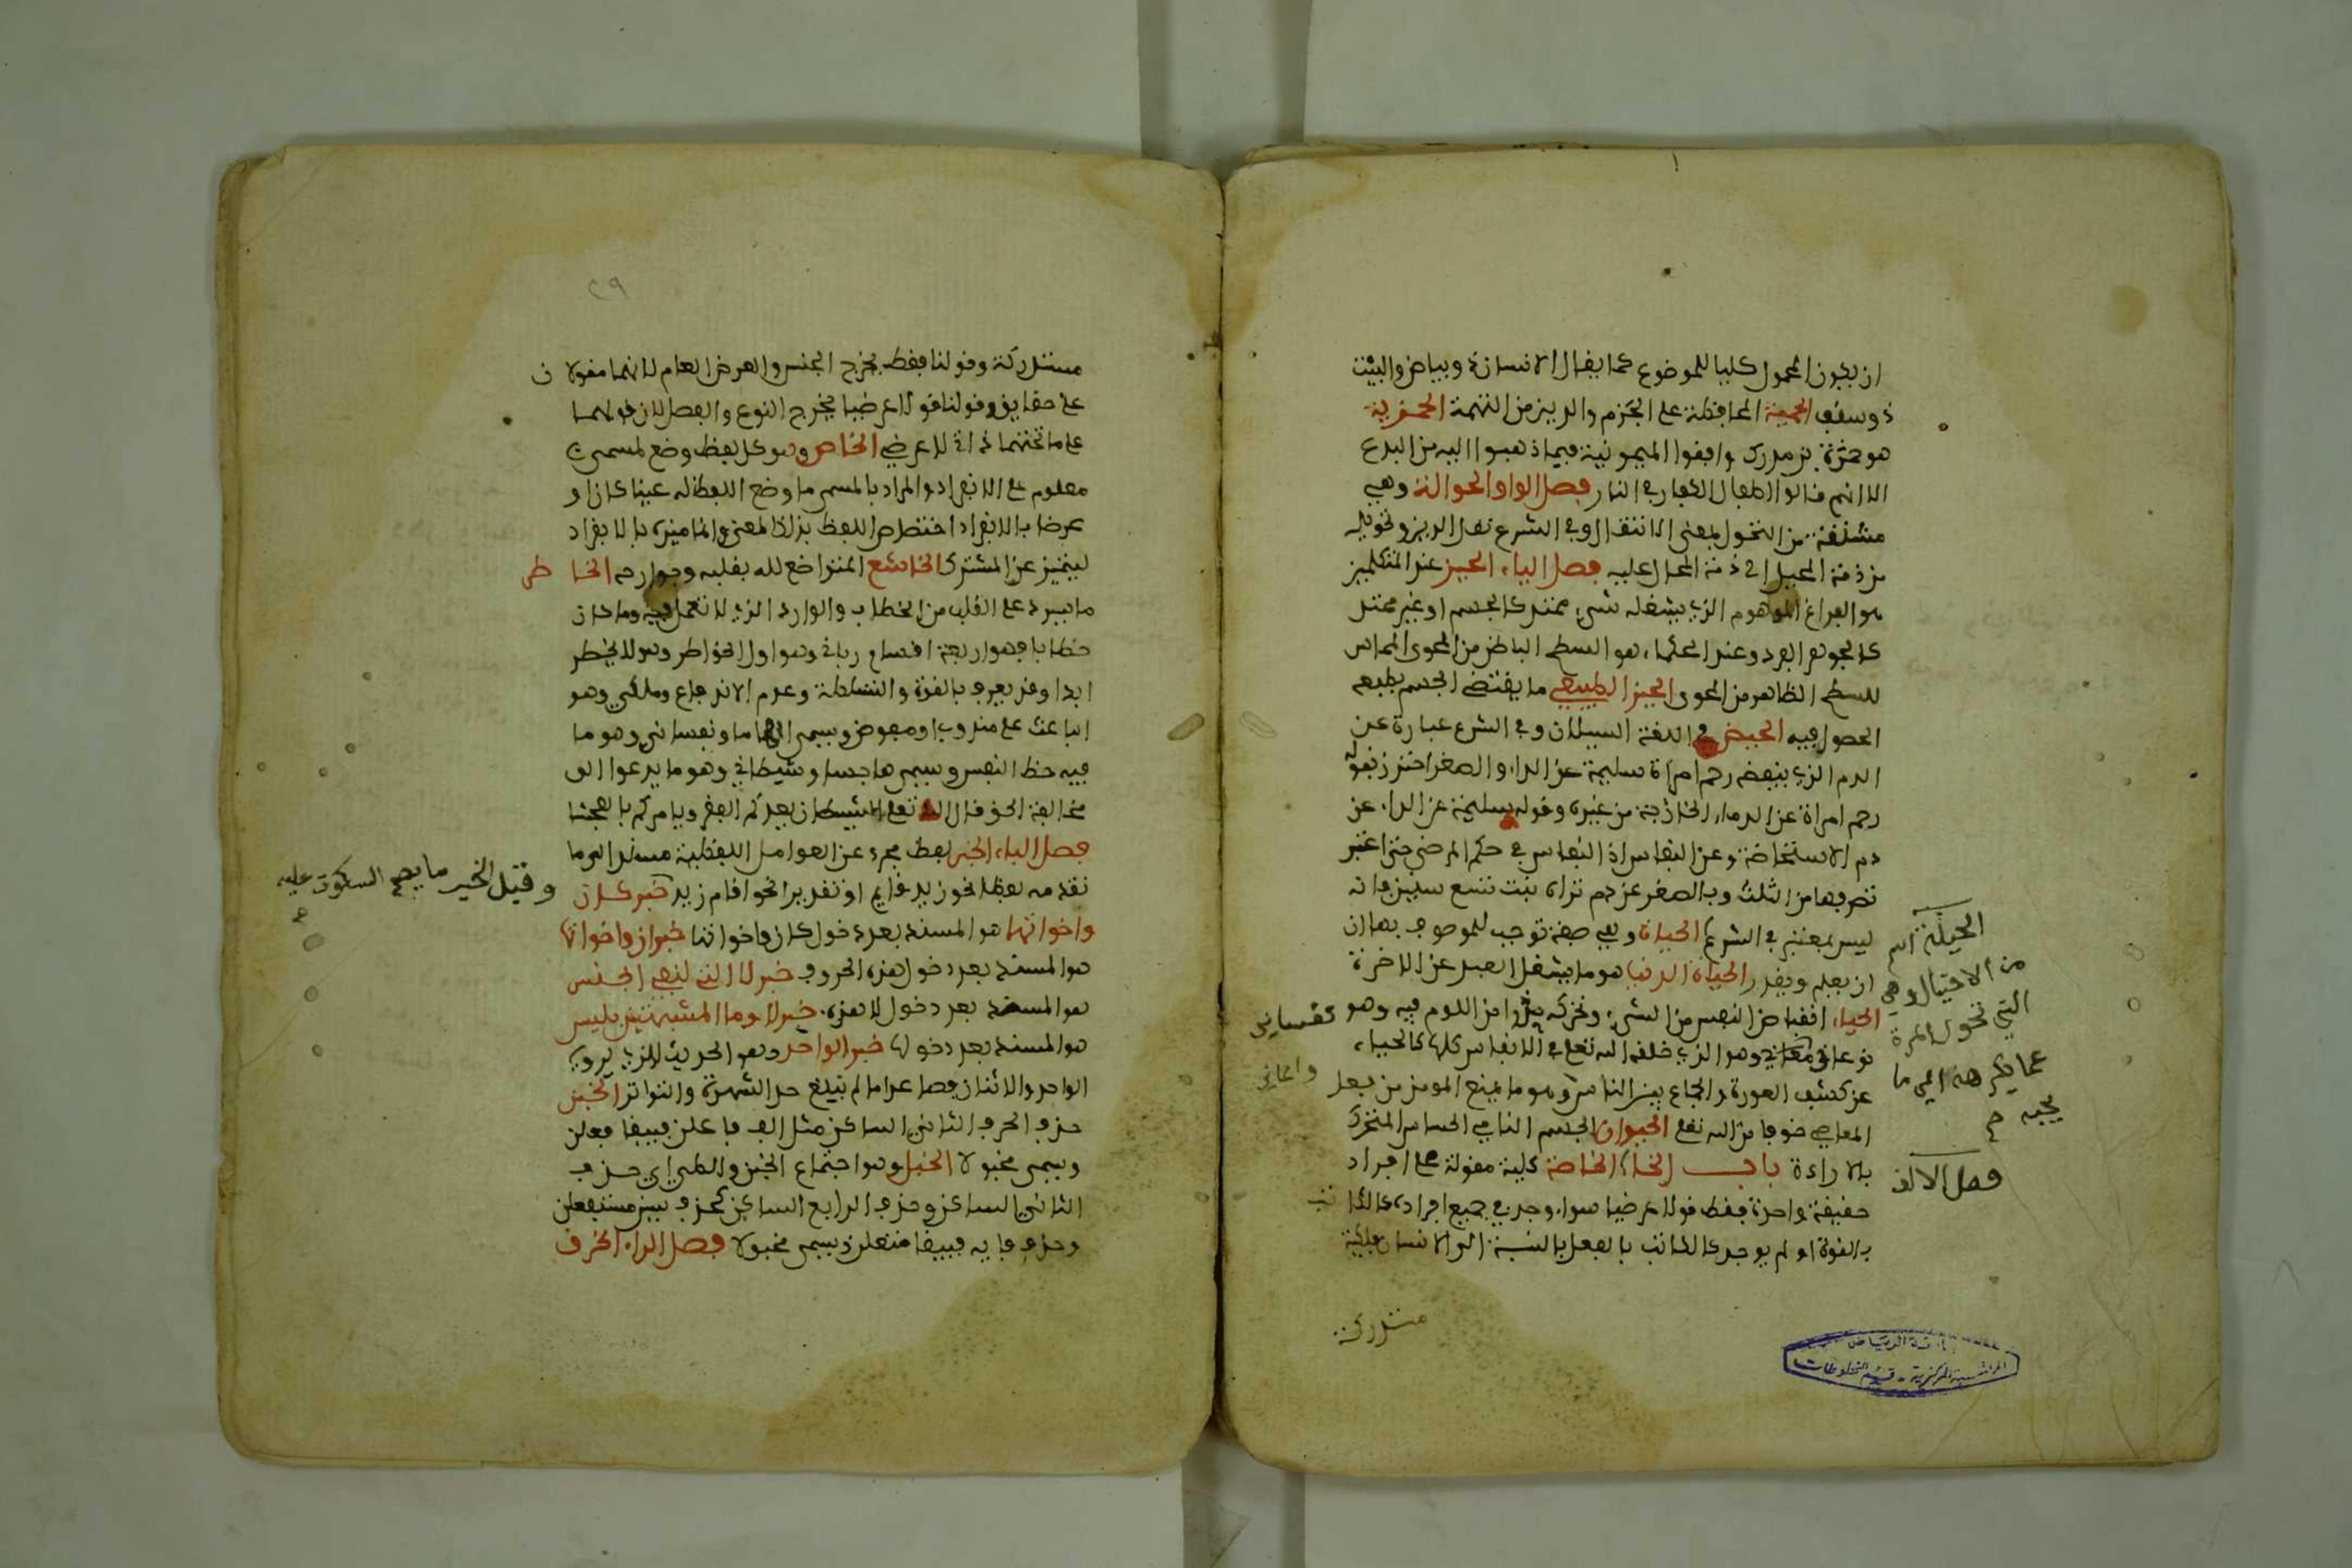 ان يكون المحمول كليا للموضوع كما يقال الانسان ذو بياض والبيت
ذو سقف الحمية المحافظة على الحرم والدين من التهمة الحمزية
هو حمزة بن مدرك وافقوا الميمونية فيما ذهبوا اليه من البدع
الا انهم قالوا اطفال الكفار في النار فصل الواو الحوالة وهي
مشتقة من التحول بمعنى الانتقال وفي الشرع نقل الدين وتحويله
من ذمة المحيل الى ذمة المحال عليه فصل الياء الحيز عند المتكلمين
هو الفراغ الموهوم الذي يشغله شيء ممتد كالجسم او غير ممتد
كالجوهر الفرد وعند الحكماء هو السطح الباطن من الحوى المماس
للسطح الظاهر من المحوى الحيز الطبيعي ما يقتضي الجسم بطبعه
الحصول فيه الحيض في اللغة السيلان وفي الشرع عبارة عن
الدم الذي ينفضه رحم امراة سليمة عن الداء والصغر احترز بقوله
رحم امراة عن الدماء الخارجة من غيره وقوله سليمة عن الداء عن
دم الاستحاضة وعن النفاس اذ النفاس في حكم المرض حتى اعتبر
تصرفها من الثلث وبالصغر عن دم تراه بنت تسع سنين فانه
ليس بمعتبر في الشرع الحياة وهي صفة توجب للموصوف بها ان
ان يعلم ويقدر الحياة الدنيا هو ما يشغل العبد عن الاخرة
الحياء انقباض النفس من الشيء وتركه حذرا من اللوم فيه وهو نفساني
نوعان وهو الذي خلقه الله تعالى في الانفاس كلها كالحياء
عن كشف العورة والجماع بين الناس وهو ما يمنع المومن من فعل
المعاصي خوفا من الله تعالى الحيوان الجسم النامي الحساس المتحرك
بالارادة باب الخاء الخاصة كلية مقولة على افراد
حقيقة واحدة فقط قولا عرضيا سواء وجد في جميع افراده كالكاتب
بالقوة او لم يوجد كالكاتب بالفعل بالنسبة الى الانسان
مشتركة
الحيلة اسم
من الاحتيال وهي
التي تحول المرء
عما يكرهه الى ما
يحبه م
فصل الالف
جامعة الرياض
المكتبة المركزية - قسم المخطوطات
٢٩
مشتركة وقولنا فقط يخرج الجنس والعرض العام لانهما مقولان
على حقايق وقولنا قولا عرضيا يخرج النوع والفصل لان قولهما
على ما تحتهما ذاتي لا عرضي الخاص وهو كل لفظ وضع لمسمى
معلوم على الانفراد والمراد بالمسمى ما وضع اللفظ له عينا كان او
عرضا بالانفراد اختصاص اللفظ بذلك المعنى وانما ميزه بالانفراد
ليتميز عن المشترك الخاشع المتواضع لله بقلبه وجوارحه الخاطر
ما يرد على القلب من الخطاب والوارد الذي لا تعمل فيه وما كان
خطابا فهو اربعة اقسام رباني وهو اول الخواطر وهو لا يخطئ
ابدا وقد يعرف بالقوة والتسلط وعدم الاندفاع وملكي وهو
الباعث على مندوب او مفروض ويسمى الهاما ونفساني وهو ما
فيه حظ النفس ويسمى هاجسا وشيطاني وهو ما يدعوا الى
مخالفة الحق قال الله تعالى الشيطان يعدكم الفقر ويامركم بالفحشا
فصل الباء الخبر لفظ مجرد عن العوامل اللفظية مسند الى ما
تقدمه لفظا نحو زيد قايم او تقديرا نحو اقام زيد خبر كان
واخواتها هو المسند بعد دخول كان واخواتها خبر ان واخواتها
هو المسند بعد دخول هذه الحروف خبر لا التي لنفي الجنس
هو المسند بعد دخول لا هذه خبر لا وما المشبهتين بليس
هو المسند بعد دخولها خبر الواحد وهو الحديث الذي يرويه
الواحد والاثنان فصاعدا ما لم يبلغ حد الشهرة والتواتر الخبن
حذف الحرف الثاني الساكن مثل الف فاعلن فيبقا فعلن
ويسمى مخبونا الخبل وهو اجتماع الخبن والطي اي حذف
الثاني الساكن وحذف الرابع الساكن كحذف سين مستفعلن
وحذف فايه فيبقا متعلن ويسمى مخبولا فصل الراء الخرق
وقيل الخبر ما يصح السكوت عليه